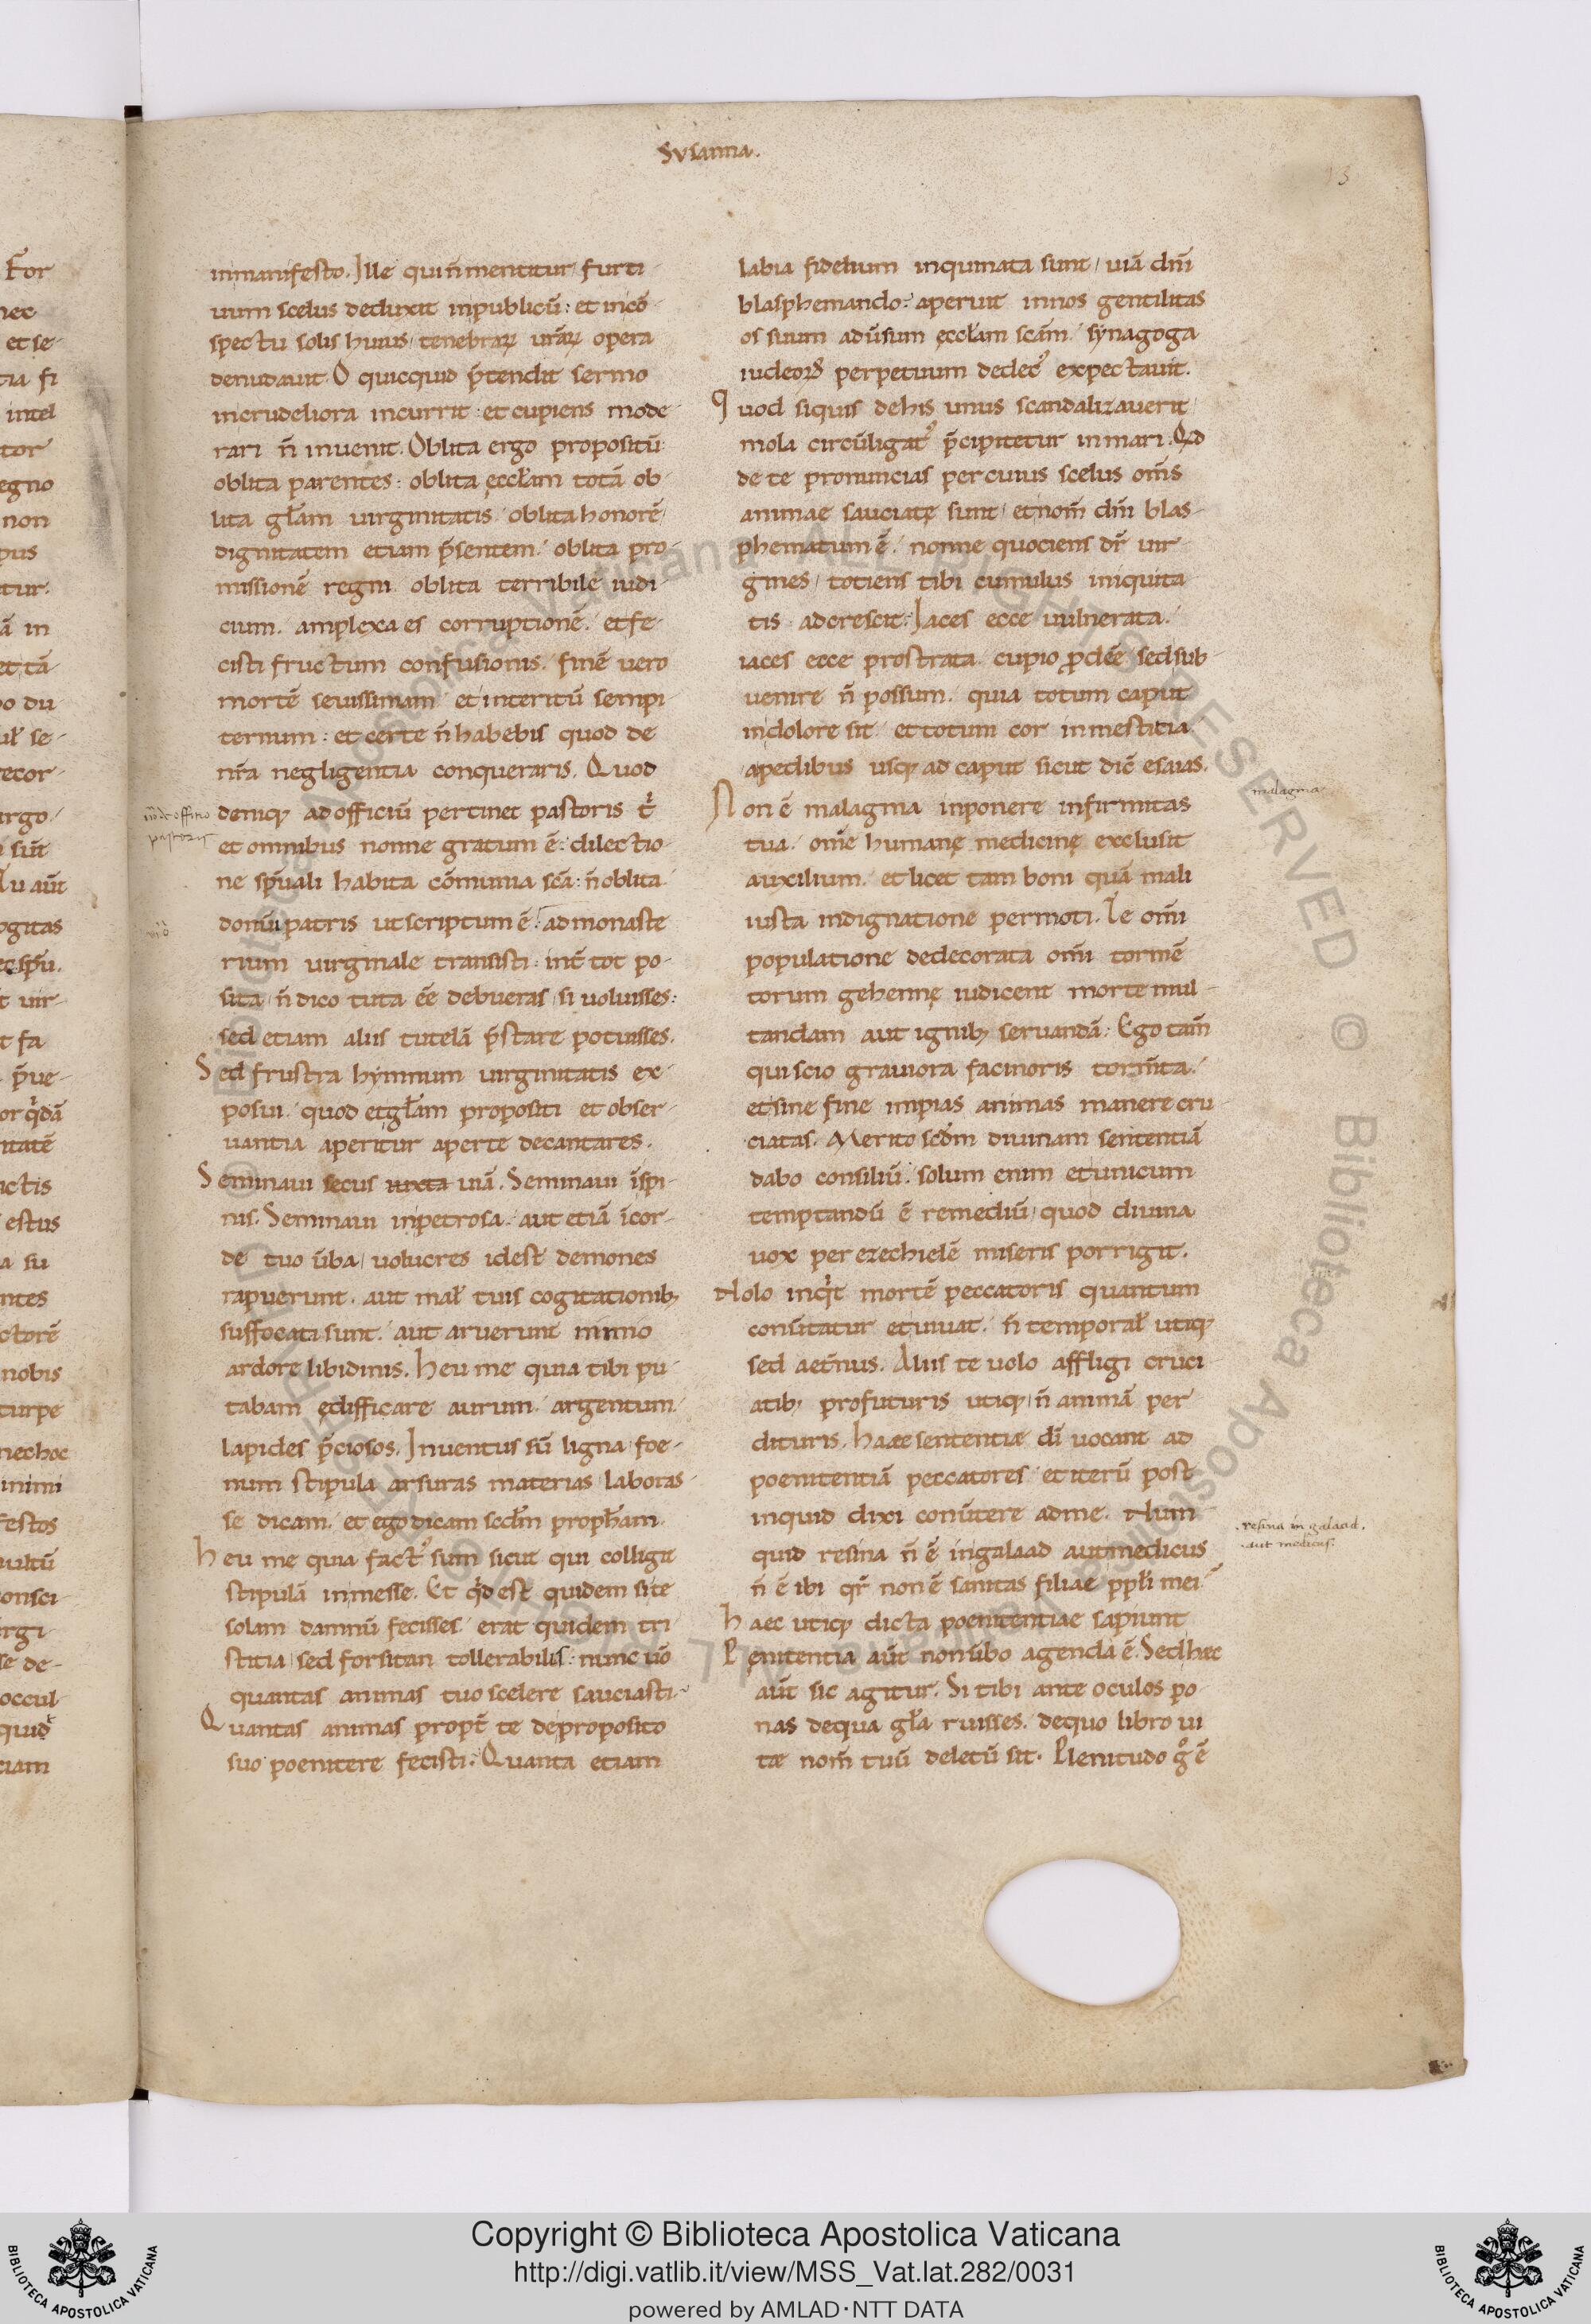 Susanna.
13
inmanifesto. Ille qui n̄ mentitur furti-
uum scelus deduxit inpublicū: et incō-
spectu solis huius tenebraꝝ urāꝝ opera
denudauit. O quicquid p̄tendit sermo
incrudeliora incurrit: et cupiens mode-
rari n̄ inuenit. Oblita ergo propositū:
oblita parentes: oblita ęccłam totā ob-
lita głam uirginitatis oblita honorē
dignitatem etiam p̄sentem. oblita pro-
missionē regni. oblita terribile iudi-
cium. amplexa es corruptionē. et fe-
cisti fructum confusionis. finē uero
mortē seuissimam et interitū sempi-
ternum: et certe n̄ habebis quod de
nr̄a negligentia conqueraris. Quod
deniq; ad officiū pertinet pastoris
et omnibus nonne gratum ē: dilectio-
ne sp̄uali habita cōmunia scā: n̄ oblita
domū patris ut scriptum ē: ad monaste
rium uirginale transisti: int̄ tot po-
sita n̄ dico tuta ēē debueras si uoluisses:
sed etiam aliis tutelā p̄stare potuisses.
Sed frustra hymnum uirginitatis ex-
posui. quod et głam propositi et obser-
uantia aperitur aperte decantares.
Seminaui secus iuxta uiā. Seminaui īspi-
nis. Seminaui inpetrosa. aut etiā īcor-
de tuo ūba uolucres idest demones
rapuerunt. aut mał tuis cogitationib;
suffocata sunt. aut aruerunt nimio
ardore libidinis. Heu me quia tibi pu-
tabam ędifficare aurum. argentum.
lapides p̄ciosos. Inuentus sū ligna foe-
num stipula arsuras materias laboras-
se dicam. et ego dicam scdm̄ proph̄am.
Heu me quia fact᾽ sum sicut qui colligit
stipulā inmesse. Et qd̄ est quidem si te
solam damnū fecisses erat quidem tri-
stitia sed forsitan tollerabilis: nunc ūo
quantas animas tuo scelere sauciasti.
Quantas animas propt̄ te deproposito
suo poenitere fecisti. Quanta etiam
labia fidelium inquinata sunt uiā dn̄i
blasphemando: aperuit innos gentilitas
os suum adūsum ęccłam scām. synagoga
iudeoꝝ perpetuum dedec᾽ expectauit.
Quod siquis dehis unus scandalizauerit
mola circūligat᾽ p̄cipitetur inmari. Qd̄
de te pronuncias percuius scelus om̄s
animae sauciatę sunt et nom̄ dn̄i blas-
phematum ē. nonne quociens dr̄ uir-
gines totiens tibi cumulus iniquita
tis adcrescit: Iaces ecce uulnerata.
iaces ecce prostrata cupio ꝓdēē sed sub-
uenire n̄ possum. quia totum caput
indolore sit et totum cor inmestitia
apedibus usq; ad caput sicut dic̄ esaias.
Non ē malagma inponere infirmitas
tua. om̄e humanę medicinę exclusit
auxilium. et licet tam boni quā mali
iusta indignatione permoti. Te om̄i
populatione dedecorata om̄i tormē
torum gehennę iudicent morte mul-
tandam aut ignib; seruandā: Ego tam̄
qui scio grauiora facinoris torm̄ta.
et sine fine impias animas manere cru-
ciatas. Merito scdm̄ diuinam sententiā
dabo consiliū. solum enim et unicum
temptandū ē remediū quod diuina
uox per ezechielē miseris porrigit.
Nolo inqt̄ mortē peccatoris quantum
conūtatur et uiuat. n̄ temporał utiq;
sed aet̄nus. Aliis te uolo affligi cruci-
atib; profuturis utiq; n̄ animā per
dituris. Haae sententiæ dī uocant ad
poenitentiā peccatores et iterū post
inquid dixi conūtere adme. Num
quid resina n̄ ē ingalaad aut medicus
n̄ ē ibi qr̄ non ē sanitas filiae ppłi mei.
Haec utiq; dicta poenitentiae sapiunt
Penitentia aūt non ūbo agenda ē. Sed hæc
aūt sic agitur. Si tibi ante oculos po-
nas dequa gła ruisses. dequo libro ui
tæ nom̄ tuū deletū sit. Plenitudo g̊ ē
malagma
.resina in galaad.
.aut medicus.
Copyright © Biblioteca Apostolica Vaticana
http://digi.vatlib.it/view/MSS_Vat.lat.282/0031
powered by AMLAD·NTT DATA
BIBLIOTECA APOSTOLICA VATICANA
BIBLIOTECA APOSTOLICA VATICANA